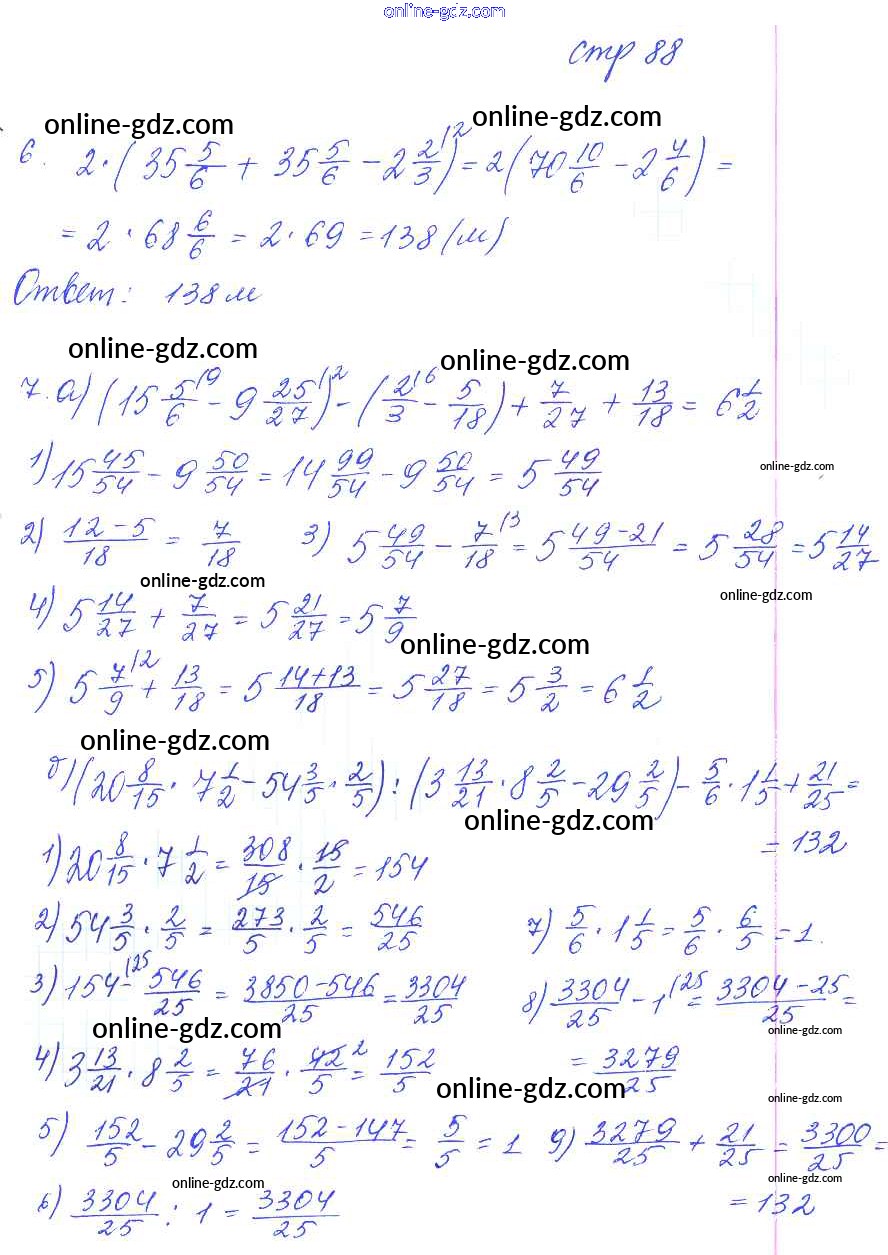 online-gdz.com
стр 88
online-gdz.com online-gdz.com
6. 2·(35 5/6 + 35 5/6 - 2 2/3 ⁽²) = 2(70 10/6 - 2 4/6) =
= 2 · 68 6/6 = 2·69 = 138 (м)
Ответ: 138 м
online-gdz.com online-gdz.com
7. а) (15 5/6 ⁽⁹ - 9 25/27 ⁽²) - (2/3 ⁽⁶ - 5/18) + 7/27 + 13/18 = 6 1/2
1) 15 45/54 - 9 50/54 = 14 99/54 - 9 50/54 = 5 49/54
online-gdz.com
2) (12-5)/18 = 7/18 3) 5 49/54 - 7/18 ⁽³ = 5 (49-21)/54 = 5 28/54 = 5 14/27
online-gdz.com online-gdz.com
4) 5 14/27 + 7/27 = 5 21/27 = 5 7/9
online-gdz.com
5) 5 7/9 ⁽² + 13/18 = 5 (14+13)/18 = 5 27/18 = 5 3/2 = 6 1/2
online-gdz.com
б) (20 8/15 · 7 1/2 - 54 3/5 · 2/5) : (3 13/21 · 8 2/5 - 29 2/5) - 5/6 · 1 1/5 + 21/25 =
online-gdz.com
= 132
1) 20 8/15 · 7 1/2 = 308/15 · 15/2 = 154
2) 54 3/5 · 2/5 = 273/5 · 2/5 = 546/25 7) 5/6 · 1 1/5 = 5/6 · 6/5 = 1.
3) 154 ⁽²⁵ - 546/25 = (3850-546)/25 = 3304/25 8) 3304/25 - 1 ⁽²⁵ = (3304-25)/25 =
online-gdz.com online-gdz.com
4) 3 13/21 · 8 2/5 = 76/21 · 42/5 ² = 152/5 = 3279/25
online-gdz.com online-gdz.com
5) 152/5 - 29 2/5 = (152-147)/5 = 5/5 = 1 9) 3279/25 + 21/25 = 3300/25 =
online-gdz.com online-gdz.com
6) 3304/25 : 1 = 3304/25 = 132